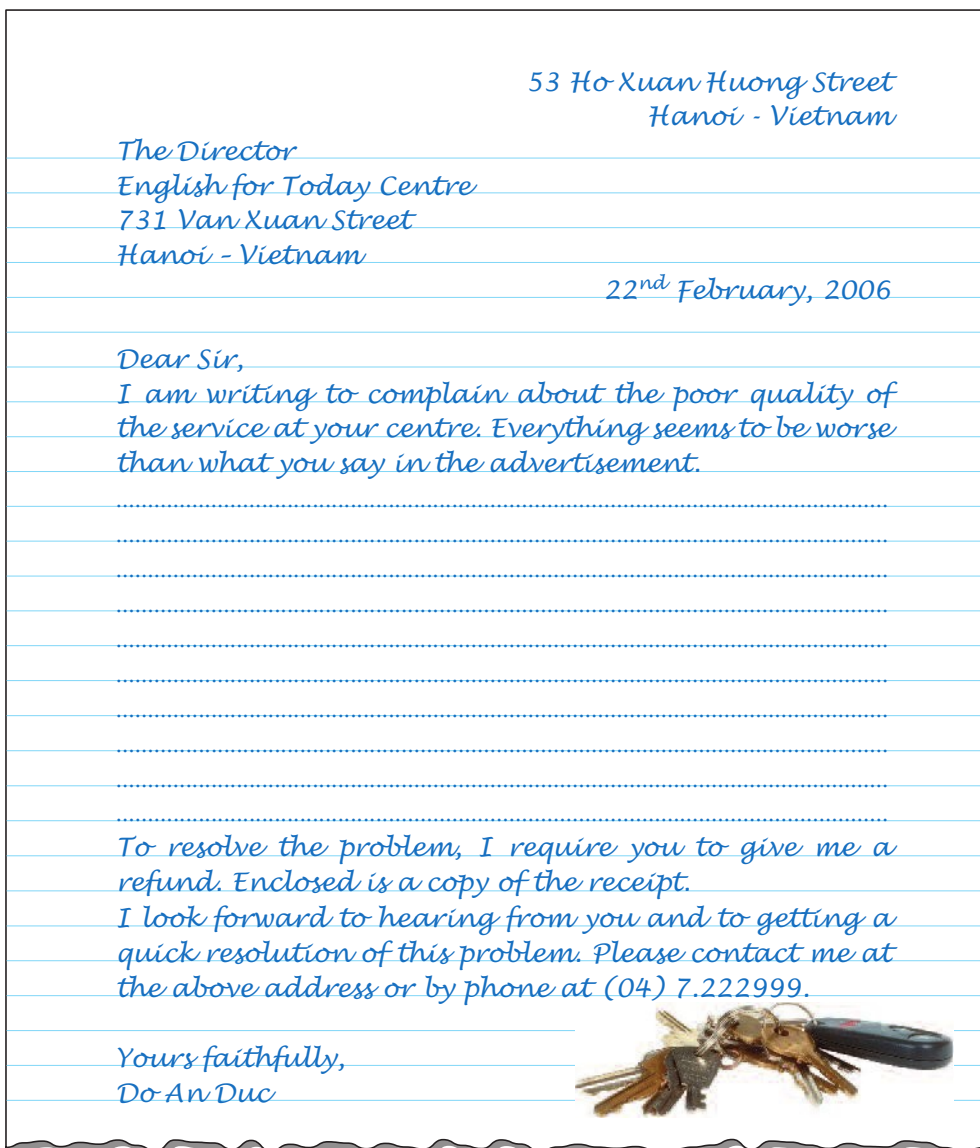 53 Ho Xuan Huong Street
Hanoi - Vietnam
The Director
English for Today Centre
731 Van Xuan Street
Hanoi – Vietnam
22nd February, 2006
Dear Sir,
I am writing to complain about the poor quality of
the service at your centre. Everything seems to be worse
than what you say in the advertisement.
..........................................................................................................................
..........................................................................................................................
..........................................................................................................................
..........................................................................................................................
..........................................................................................................................
..........................................................................................................................
..........................................................................................................................
..........................................................................................................................
..........................................................................................................................
..........................................................................................................................
To resolve the problem, I require you to give me a
refund. Enclosed is a copy of the receipt.
I look forward to hearing from you and to getting a
quick resolution of this problem. Please contact me at
the above address or by phone at (04) 7.222999.
Yours faithfully,
Do An Duc